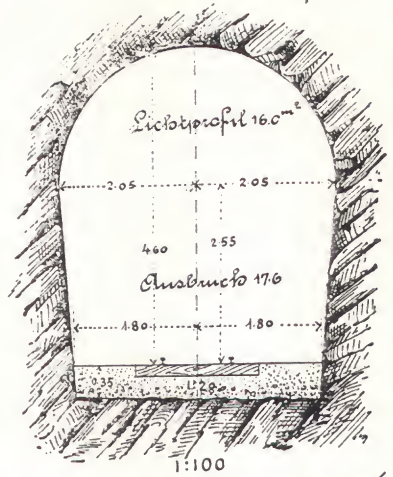 Lichtprofil 16.0 m²
2.05 2.05
4.60 2.55
Ausbruch 17.6
1.80 1.80
0.35
1:100